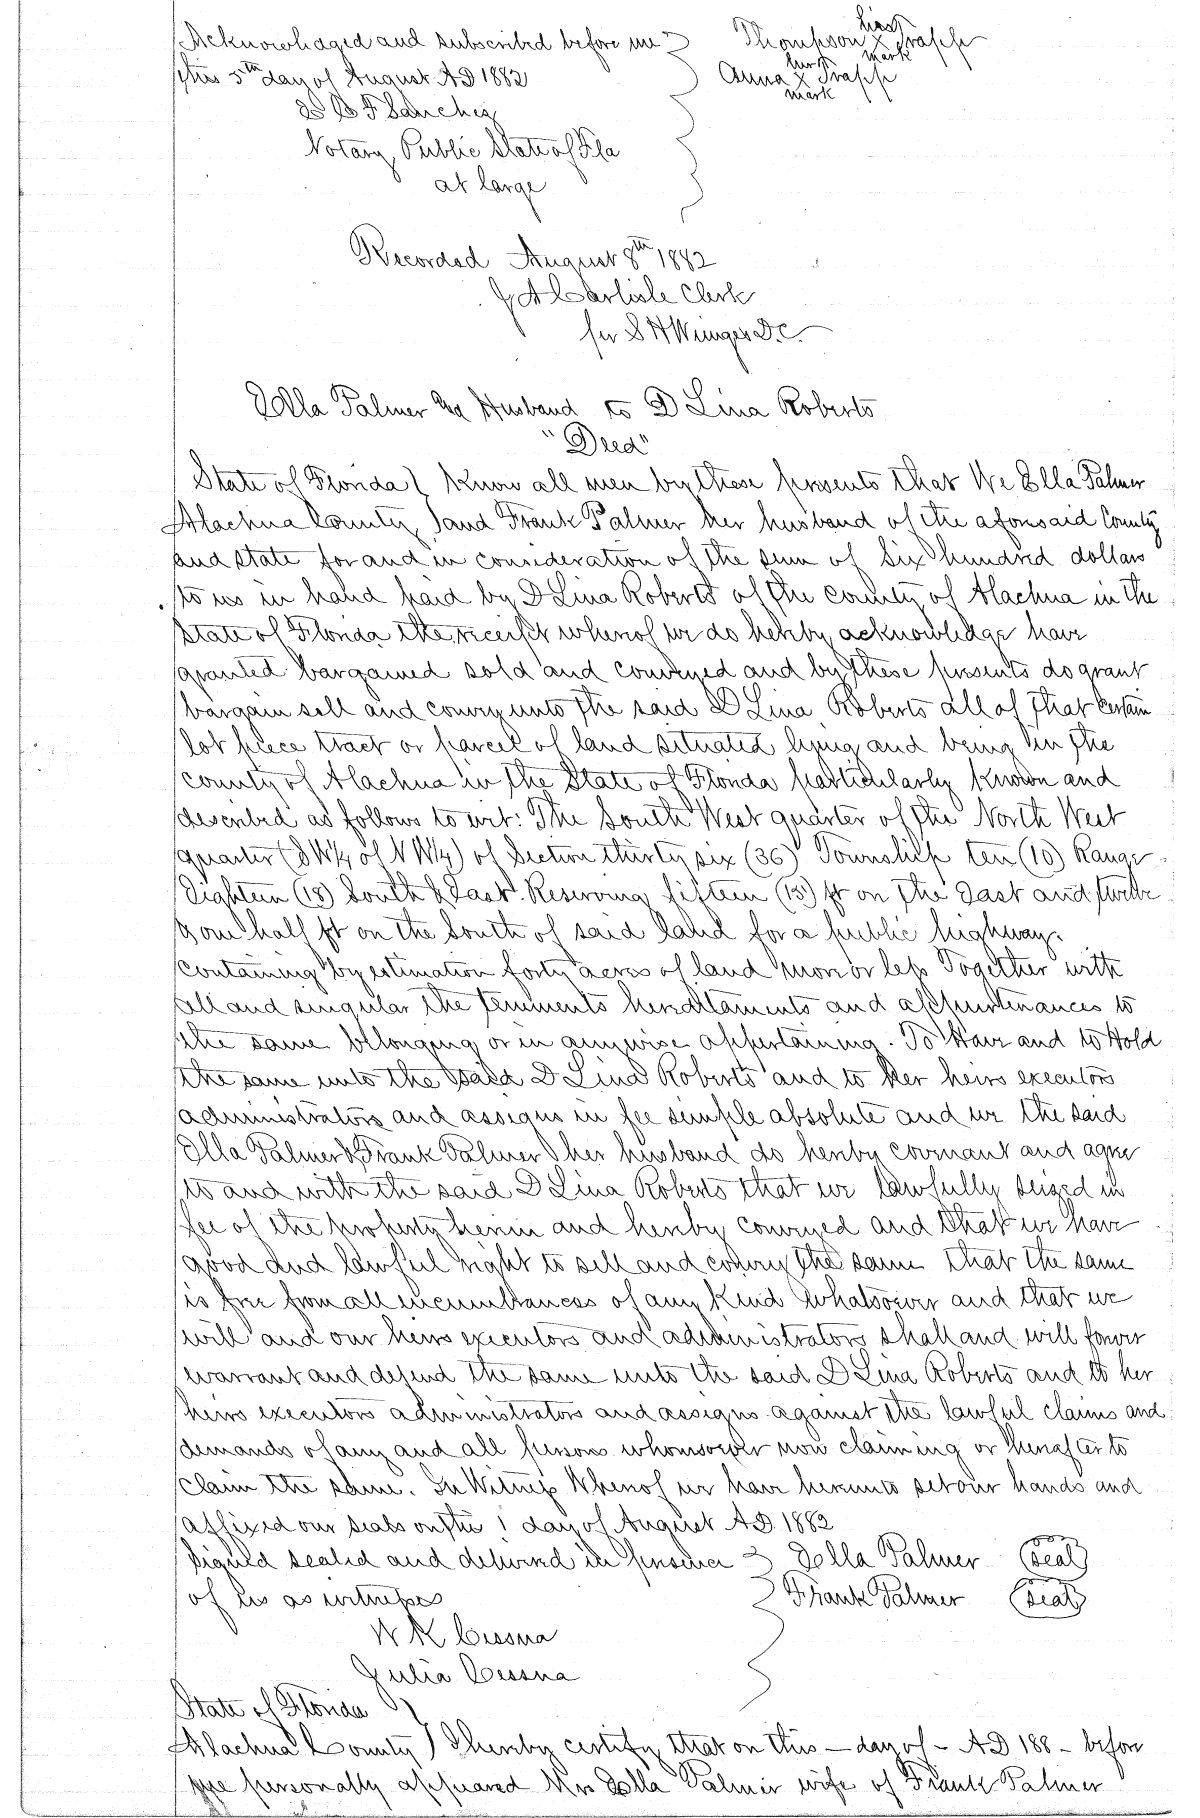 Acknowledged and subscribed before me } Thompson his x mark Trapp
this 5th day of August AD 1882 Anna her x mark Trapp
B F Sanchez
Notary Public State of Fla
at large
Recorded August 8th 1882
J A Carlisle Clerk
per S H Wienges D.C.
Ella Palmer & Husband to D Lina Roberts
"Deed"
State of Florida } Know all men by these presents that We Ella Palmer
Alachua County } and Frank Palmer her husband of the aforesaid County
and state for and in consideration of the sum of Six hundred dollars
to us in hand paid by D Lina Roberts of the county of Alachua in the
State of Florida the receipt whereof we do hereby acknowledge have
granted bargained sold and conveyed and by these presents do grant
bargain sell and convey unto the said D Lina Roberts all of that certain
lot piece tract or parcel of land situated lying and being in the
county of Alachua in the State of Florida particularly known and
described as follows to wit: The South West quarter of the North West
quarter (SW¼ of NW¼) of Section thirty six (36) Township ten (10) Range
Eighteen (18) South & East. Reserving fifteen (15) ft on the East and twelve
& one half ft on the South of said land for a public highway.
containing by estimation forty acres of land more or less Together with
all and singular the tenements hereditaments and appurtenances to
the same belonging or in anywise appertaining. To Have and to Hold
the same unto the said D Lina Roberts and to her heirs executors
administrators and assigns in fee simple absolute and we the said
Ella Palmer & Frank Palmer her husband do hereby covenant and agree
to and with the said D Lina Roberts that we lawfully seized in
fee of the property herein and hereby conveyed and that we have
good and lawful right to sell and convey the same that the same
is free from all incumbrances of any kind whatsoever and that we
will and our heirs executors and administrators shall and will forever
warrant and defend the same unto the said D Lina Roberts and to her
heirs executors administrators and assigns against the lawful claims and
demands of any and all persons whomsoever now claiming or hereafter to
claim the same. In Witness Whereof we have hereunto set our hands and
affixed our seals on the 1 day of August AD 1882
Signed sealed and delivered in presence } Ella Palmer (seal)
of us as witnesses } Frank Palmer (seal)
W K Cessna
Julia Cessna
State of Florida }
Alachua County } I hereby certify that on this — day of — AD 188 — before
me personally appeared Mrs Ella Palmer wife of Frank Palmer